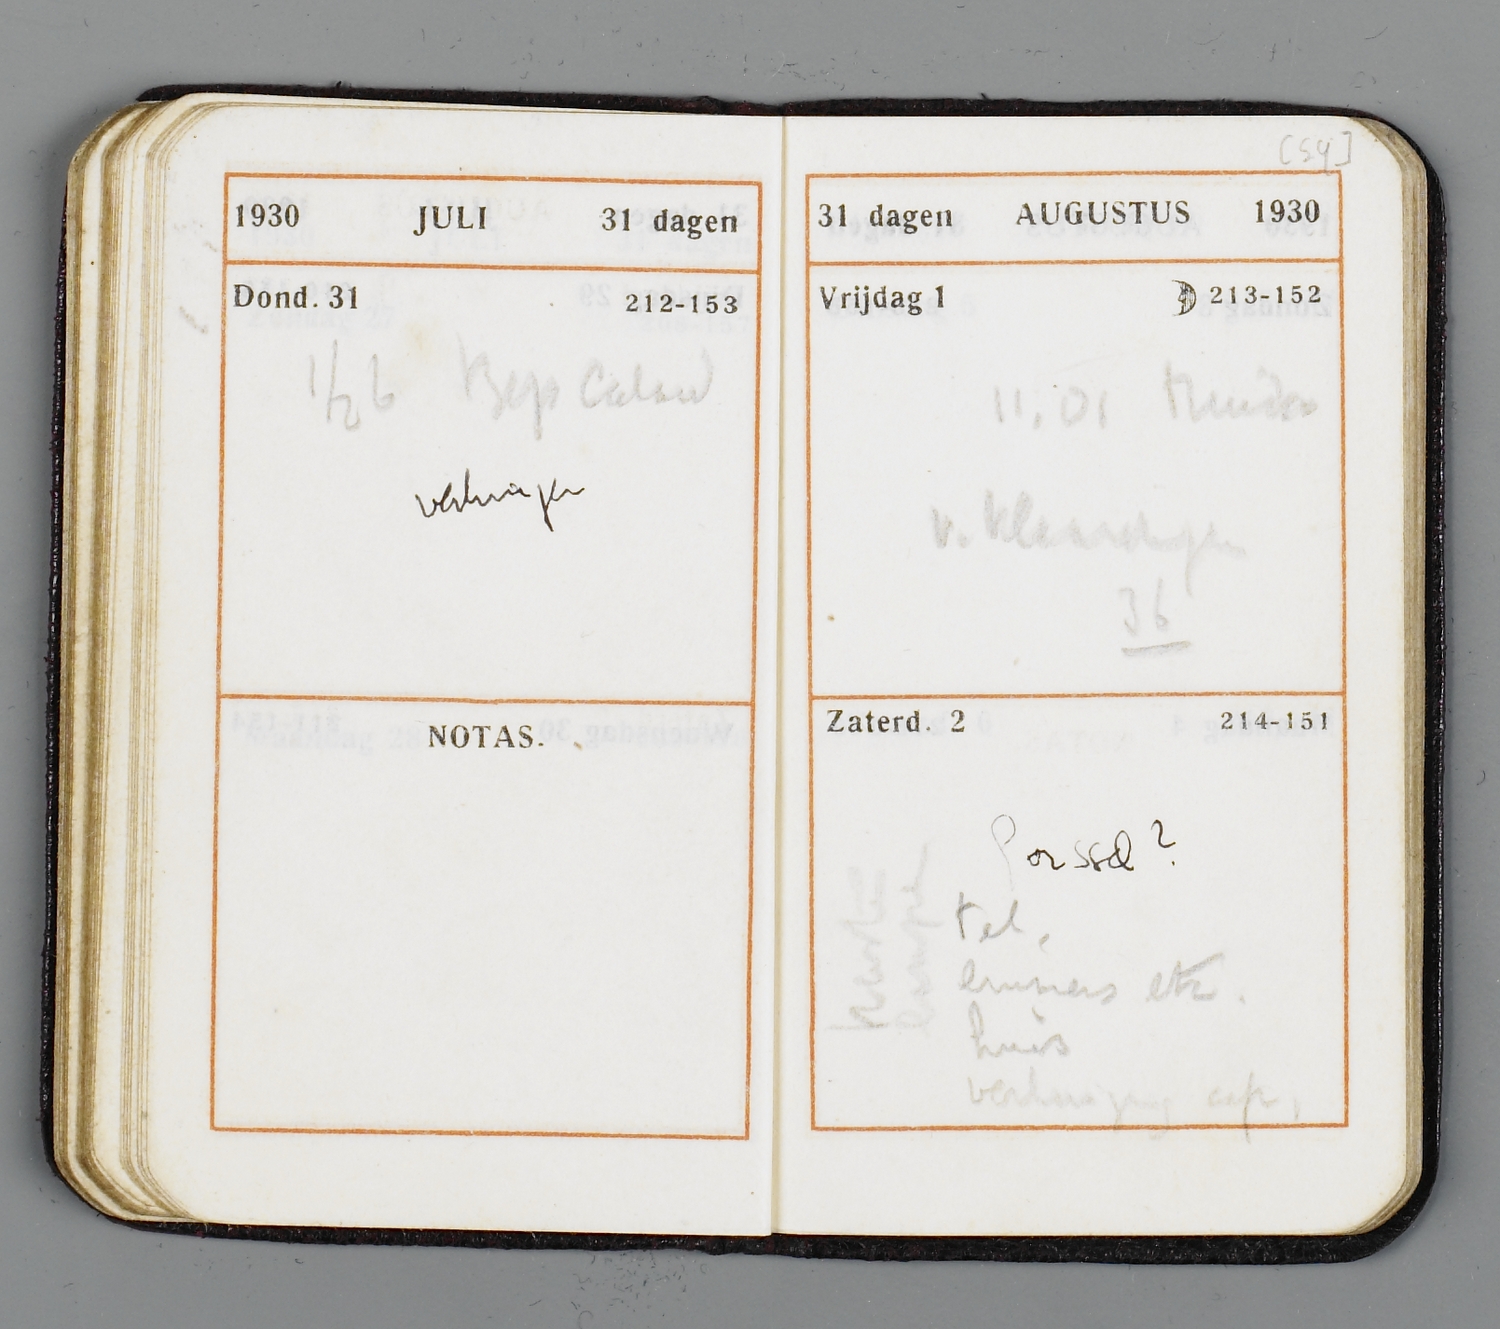 1930 JULI 31 dagen
Dond. 31 212-153
1/2 6 Beps
verhuizen
NOTAS.
[54]
31 dagen AUGUSTUS 1930
Vrijdag 1 213-152
11.01
v. Vlaardingen
36
Zaterd. 2 214-151
Gorssel?
tel.
emmers etc.
huis
verhuizing